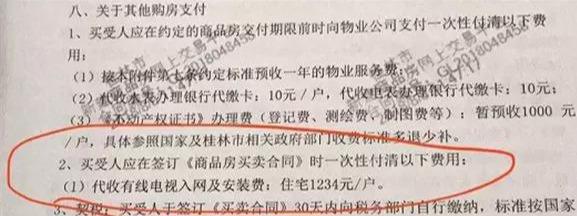 八、关于其他购房支付
1、买受人应在约定的商品房交付期限前时向物业公司支付一次性付清以下费
用：
（1）按本附件第七条约定标准预收一年的物业服务费；
（2）代收水表办理银行代缴卡：10元／户，代收电表办理银行代缴卡：10元；
（3）《不动产权证书》办理费（登记费、测绘费、制图费等）：暂预收1000 元
／户，具体参照国家及桂林市相关政府部门收费标准多退少补。
2、买受人应在签订《商品房买卖合同》时一次性付清以下费用：
（1）代收有线电视入网及安装费：住宅1234元／户。
3、契税：买受人于签订《买卖合同》30天内向税务部门自行缴纳，标准按国家